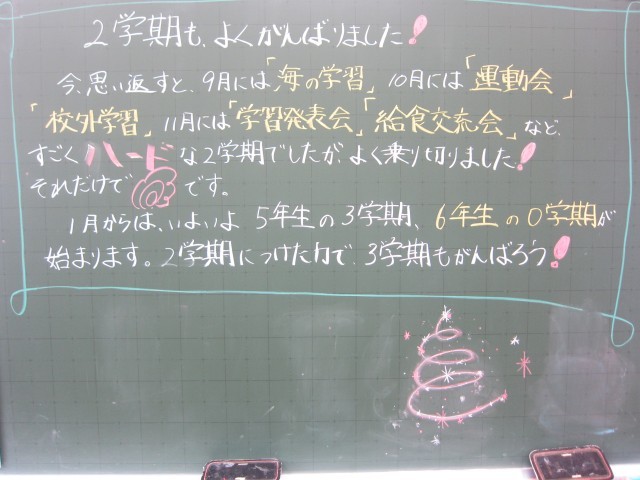 2学期も、よくがんばりました!
今、思い返すと、9月には「海の学習」10月には「運動会」
「校外学習」11月には「学習発表会」「給食交流会」など、
すごくハードな2学期でしたが、よく乗り切りました!
それだけで です。
1月からは、いよいよ5年生の3学期、6年生の0学期が
始まります。2学期につけた力で、3学期もがんばろう!